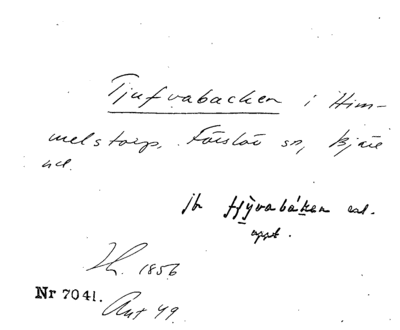 Tjufvabacken i Him-
melstorp. Förslöv sn, Bjäre
hd.
jfr Hývabáken enl.
uppt.
Lh. 1856
Nr 7041. Ant 49